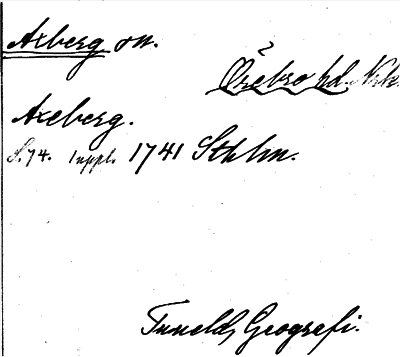 Axberg sn.
Örebro hd. Nrk.
Axeberg.
S. 74. 1 uppl. 1741 Sthlm.
Tunelds Geografi.